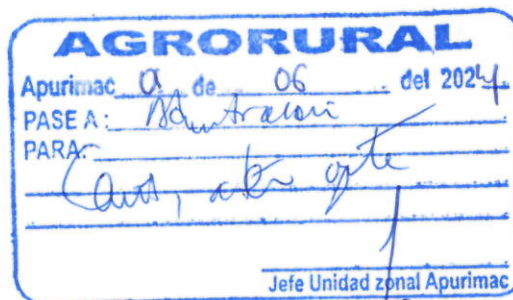 AGRORURAL
Apurimac 0 de 06 del 2024
PASE A: Administración
PARA:
Jefe Unidad zonal Apurimac